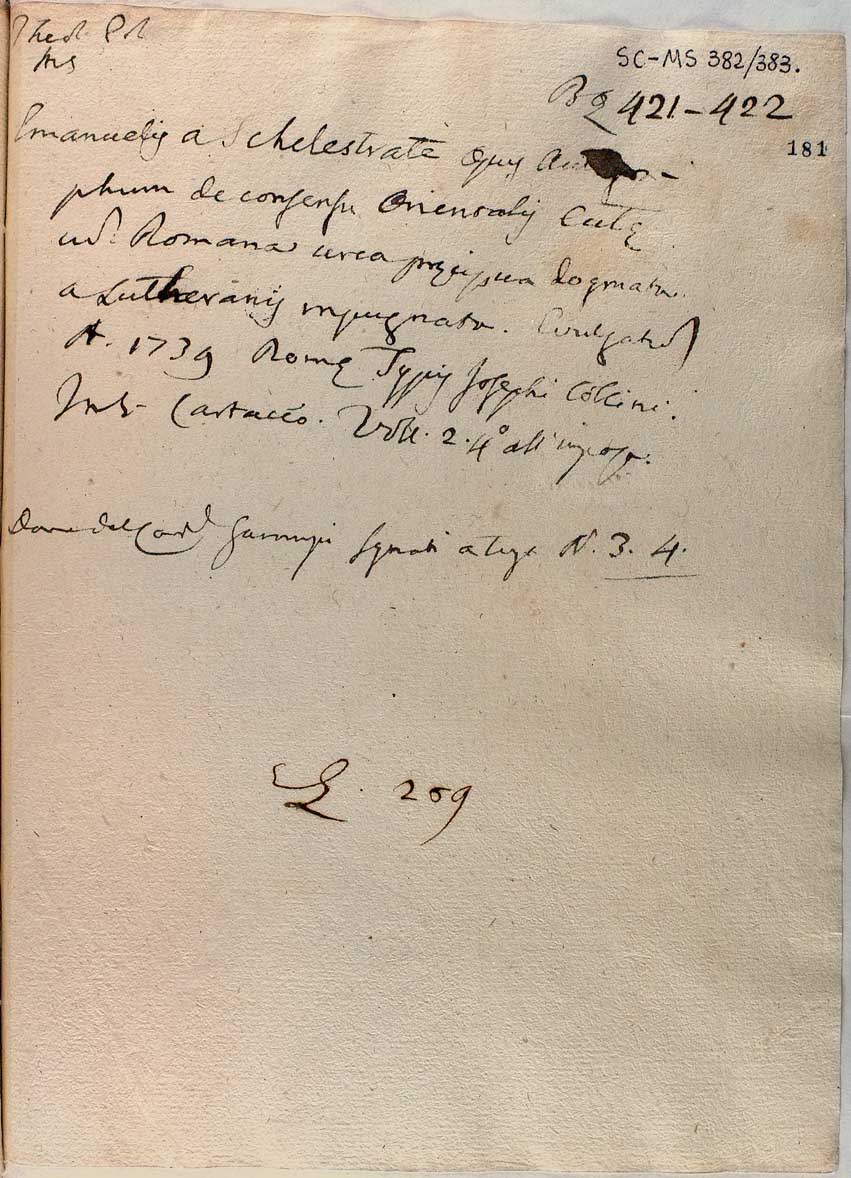 Theol. Pol.
Ms
SC-MS 382/383.
BQ 421-422
181
Emanuelis a Schelestrate Opus Autogra-
phum de consensu Orientalis Eccłę
cū Romana circa pręcipua dogmata
a Lutheranis impugnata. Evulgatū
A. 1739 Romę Typis Josephi Collini.
Ms. Cartaceo. Voll. 2. 4º
Dono del Card.l Garampi segnati a tergo N. 3. 4.
L. 209